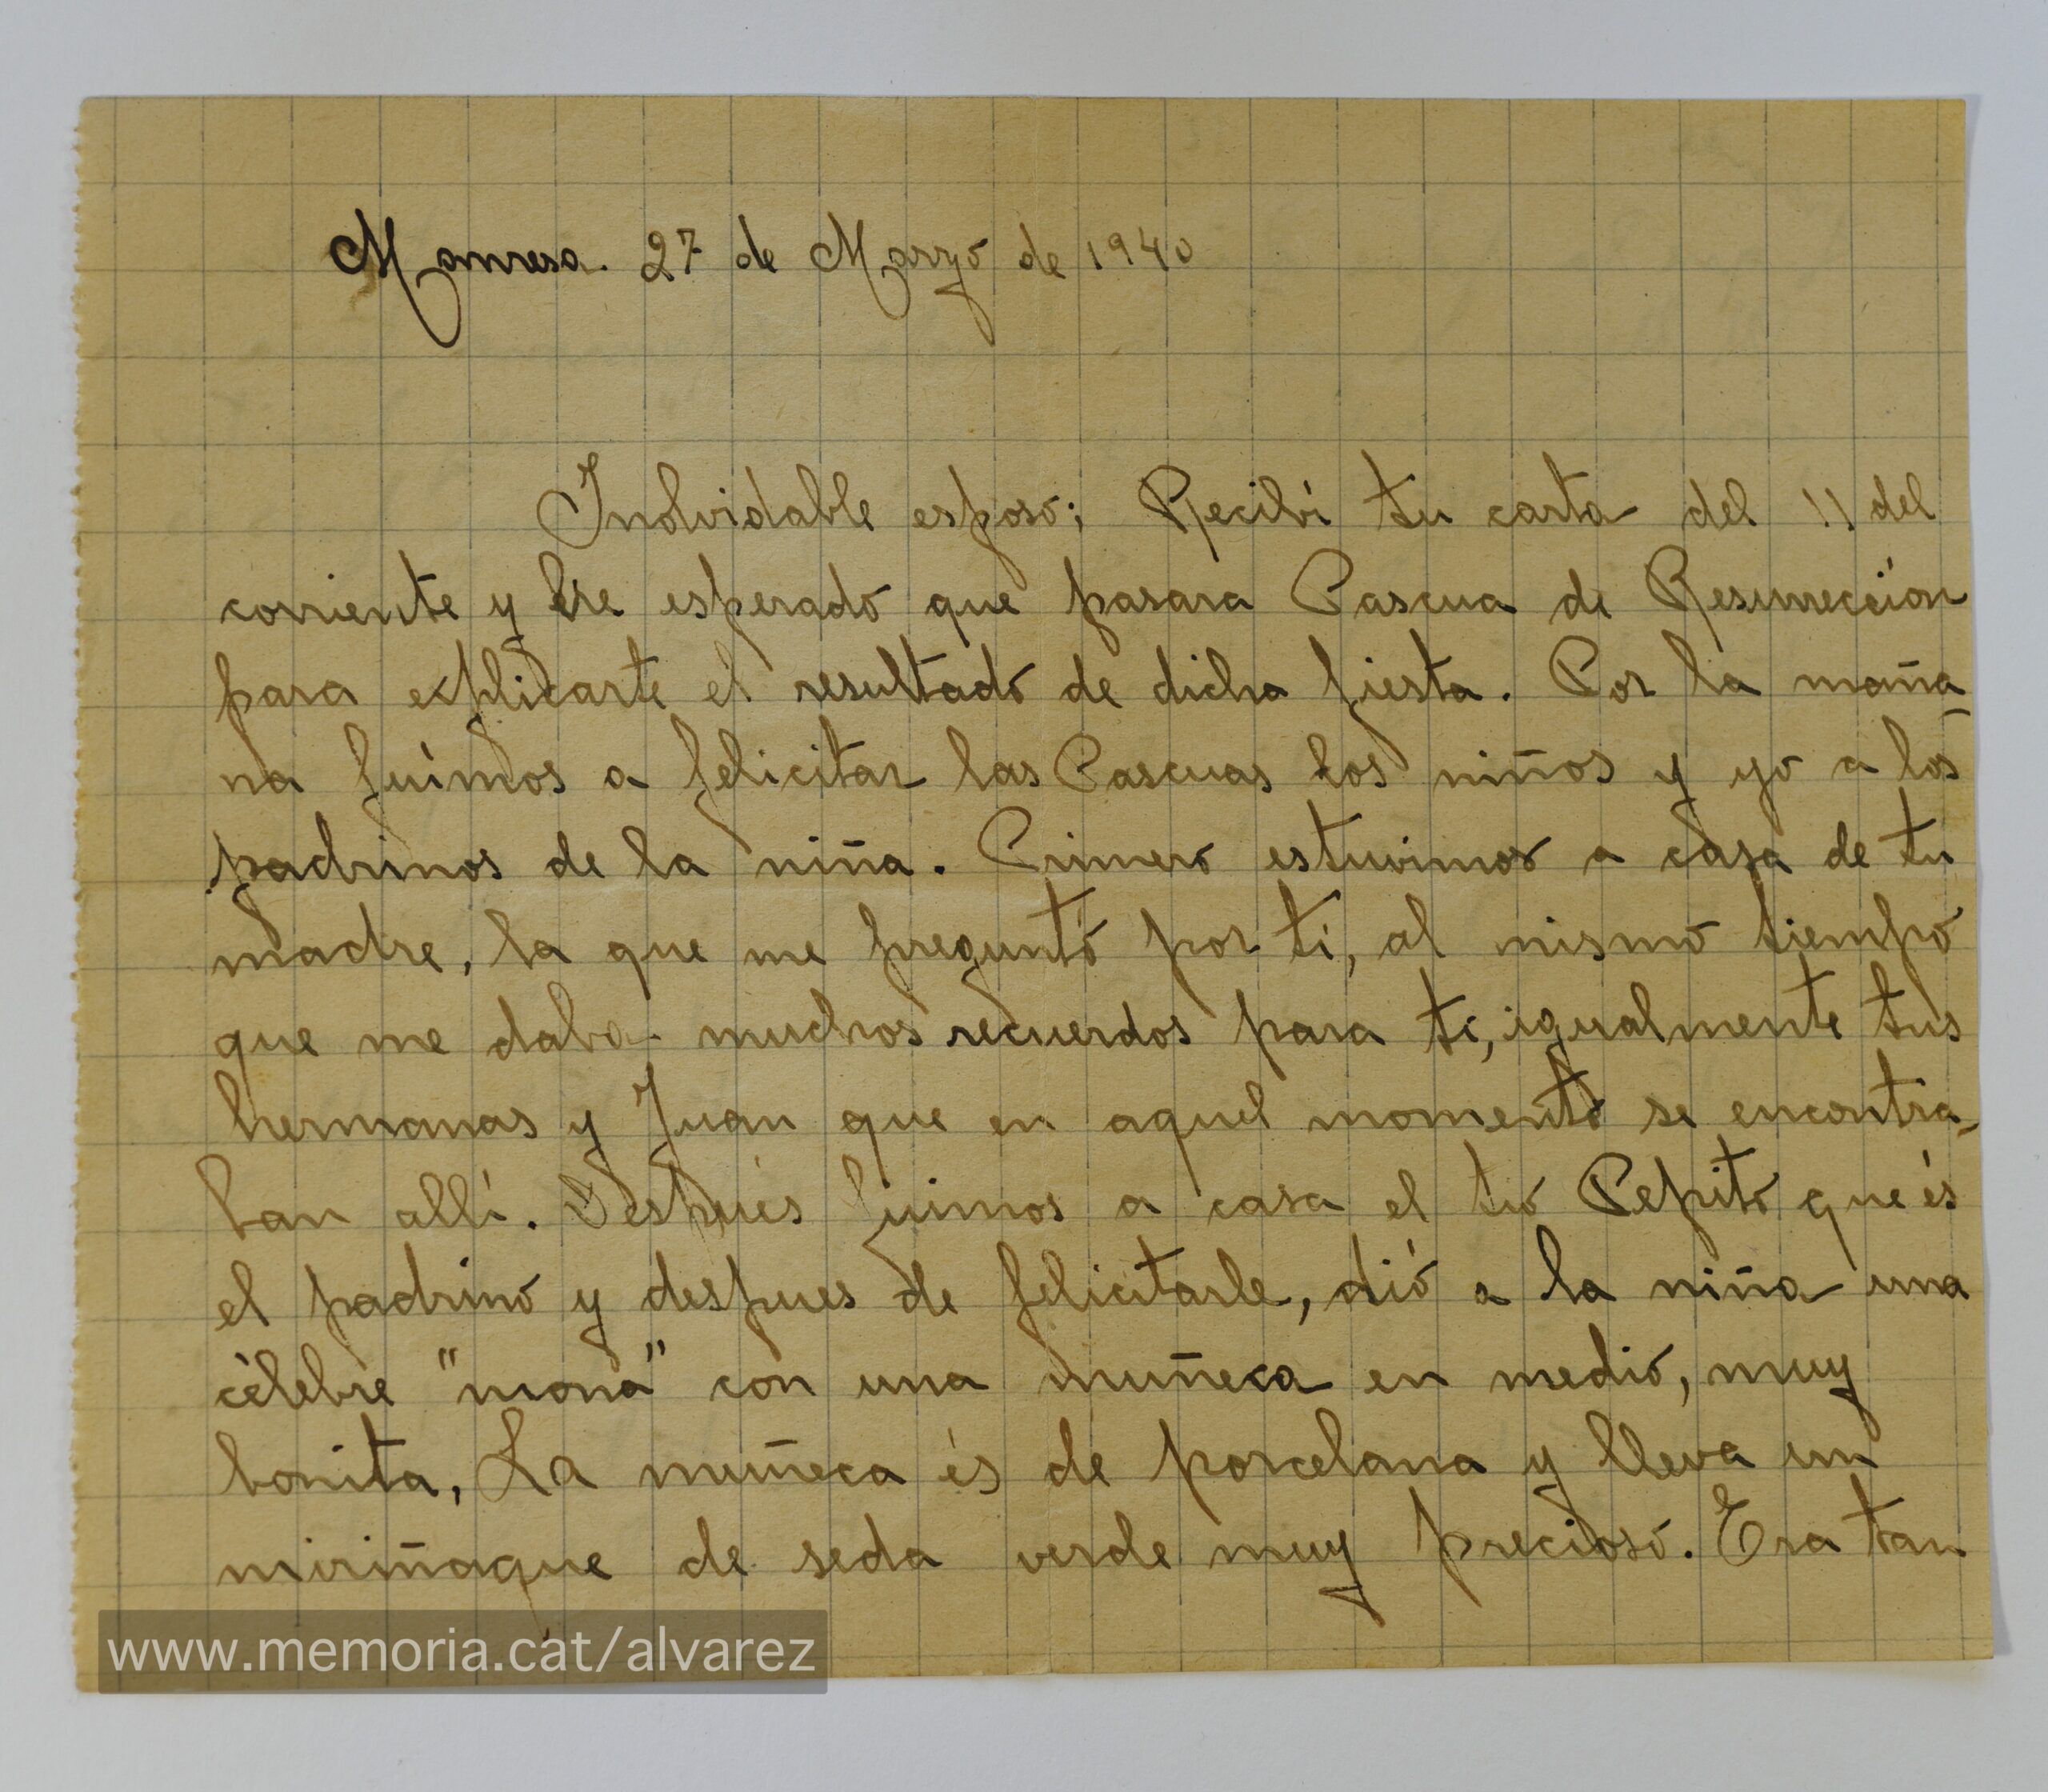 Manresa. 27 de Marzo de 1940
Inolvidable esposo; Recibí tu carta del 11 del
corriente y he esperado que pasara Pascua de Resurrección
para explicarte el resultado de dicha fiesta. Por la maña-
na fuímos a felicitar las Pascuas los niños y yo a los
padrinos de la niña. Primero estuvimos a casa de tu
madre, la que me preguntó por ti, al mismo tiempo
que me daba muchos recuerdos para ti, igualmente tus
hermanas y Juan que en aquel momento se encontra-
ban allí. Despues fuimos a casa el tio Pepito que és
el padrino y despues de felicitarle, dió a la niña una
célebre "mona" con una muñeca en medio, muy
bonita, La muñeca és de porcelana y lleva un
miriñaque de seda verde muy precioso. Era tan
www.memoria.cat/alvarez